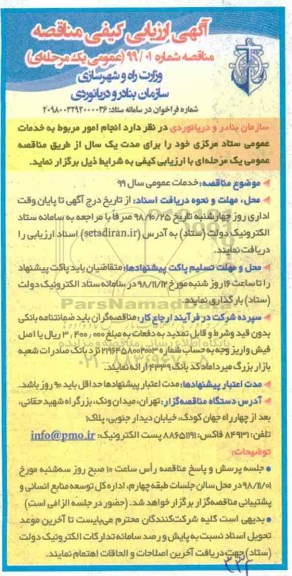 آگهی ارزیابی کیفی مناقصه
مناقصه شماره ۹۹/۰۱ (عمومی یک مرحله‌ای)
وزارت راه و شهرسازی
سازمان بنادر و دریانوردی
شماره فراخوان در سامانه ستاد: ۲۰۹۸۰۰۳۲۹۲۰۰۰۰۳۶
سازمان بنادر و دریانوردی در نظر دارد انجام امور مربوط به خدمات
عمومی ستاد مرکزی خود را برای مدت یک سال از طریق مناقصه
عمومی یک مرحله‌ای با ارزیابی کیفی به شرایط ذیل برگزار نماید.
موضوع مناقصه: خدمات عمومی سال ۹۹
محل، مهلت و نحوه دریافت اسناد: از تاریخ درج آگهی تا پایان وقت
اداری روز چهارشنبه تاریخ ۹۸/۱۰/۲۵ صرفاً با مراجعه به سامانه ستاد
الکترونیک دولت (ستاد) به آدرس (setadiran.ir) اسناد ارزیابی را
دریافت نمایند.
محل و مهلت تسلیم پاکت پیشنهادها: متقاضیان باید پاکت پیشنهاد
را تا ساعت ۱۶ روز شنبه مورخ ۹۸/۱۱/۱۲ در سامانه ستاد الکترونیک دولت
(ستاد) بارگذاری نمایند.
سپرده شرکت در فرآیند ارجاع کار: مناقصه‌گران باید ضمانتنامه بانکی
بدون قید و شرط و قابل تمدید به دفعات به مبلغ ریال یا اصل
فیش واریز وجه به حساب شماره نزد بانک صادرات شعبه
بازار بزرگ میرداماد کد بانک ۳۴۳۹ ارائه نمایند.
مدت اعتبار پیشنهادها: مدت اعتبار پیشنهادها حداقل باید ۹۰ روز باشد.
آدرس دستگاه مناقصه‌گزار: تهران، میدان ونک، بزرگراه شهید حقانی،
بعد از چهارراه جهان کودک، خیابان دیدار جنوبی، پلاک ۱
تلفن: ۸۴۹۳۱ فاکس: ۸۸۶۵۱۱۹۱ پست الکترونیک: info@pmo.ir
توضیحات:
جلسه پرسش و پاسخ مناقصه رأس ساعت ۱۰ صبح روز سه‌شنبه مورخ
۹۸/۱۱/۰۱ در محل سالن جلسات طبقه چهارم، اداره کل توسعه منابع انسانی و
پشتیبانی مناقصه‌گزار برگزار خواهد شد. (حضور در جلسه الزامی است)
بدیهی است کلیه شرکت‌کنندگان محترم می‌بایست تا آخرین موعد
تحویل اسناد نسبت به پایش و رصد سامانه تدارکات الکترونیک دولت
(ستاد) جهت دریافت آخرین اصلاحات و الحاقات اهتمام نمایند.